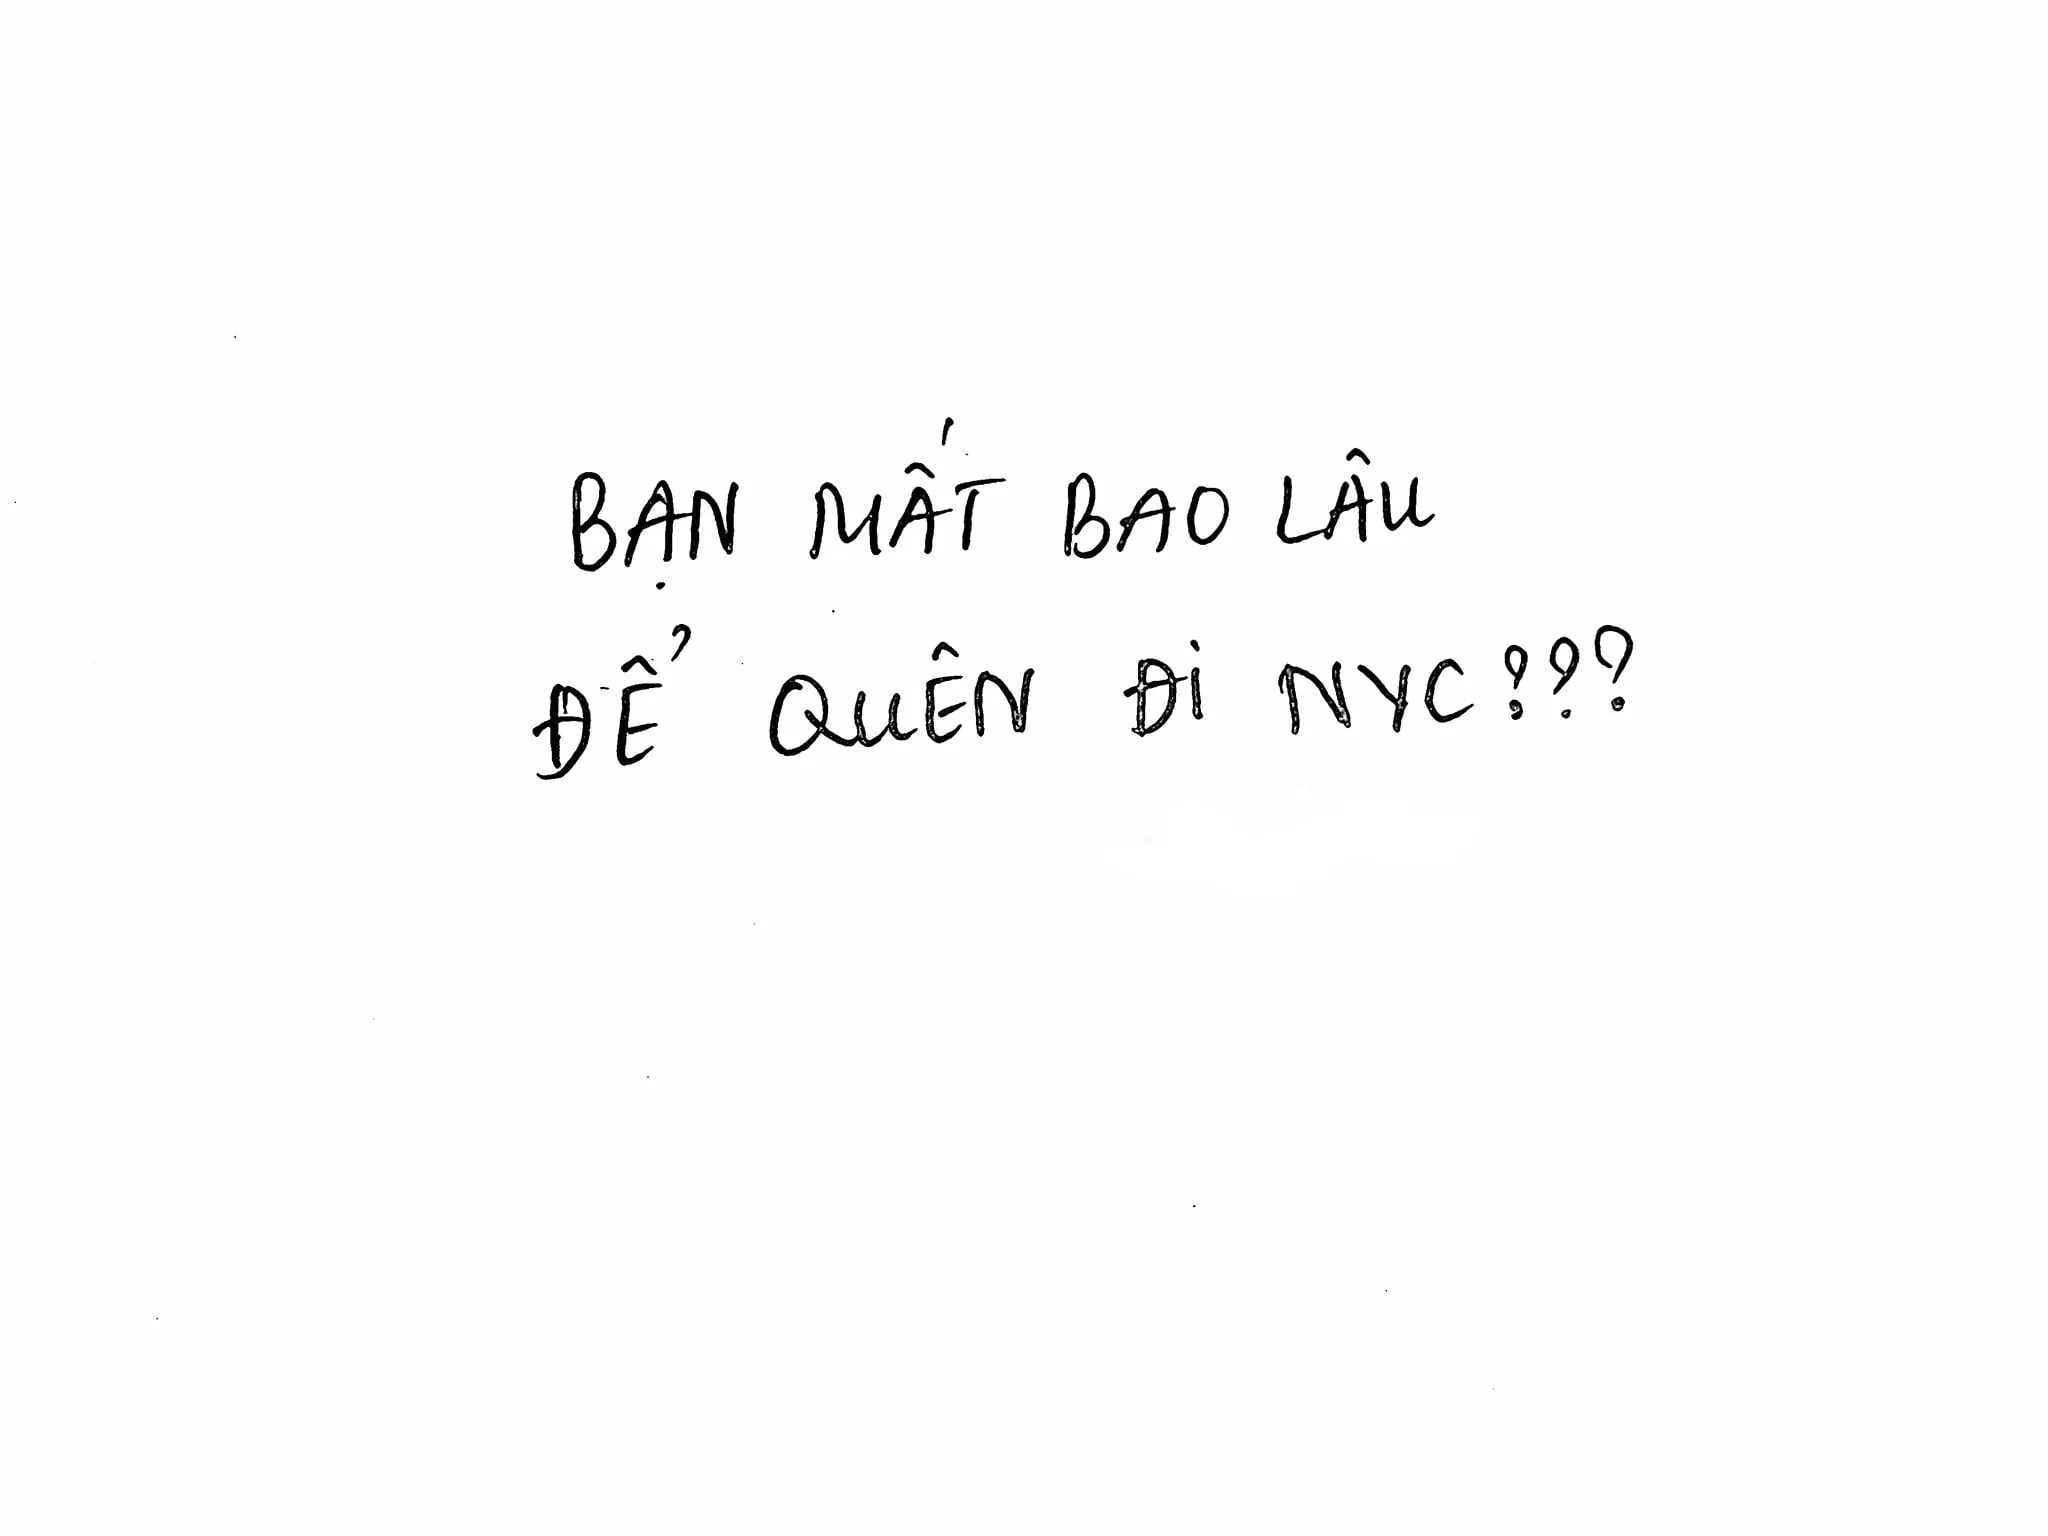 BẠN MẤT BAO LÂU
ĐỂ QUÊN ĐI NYC???